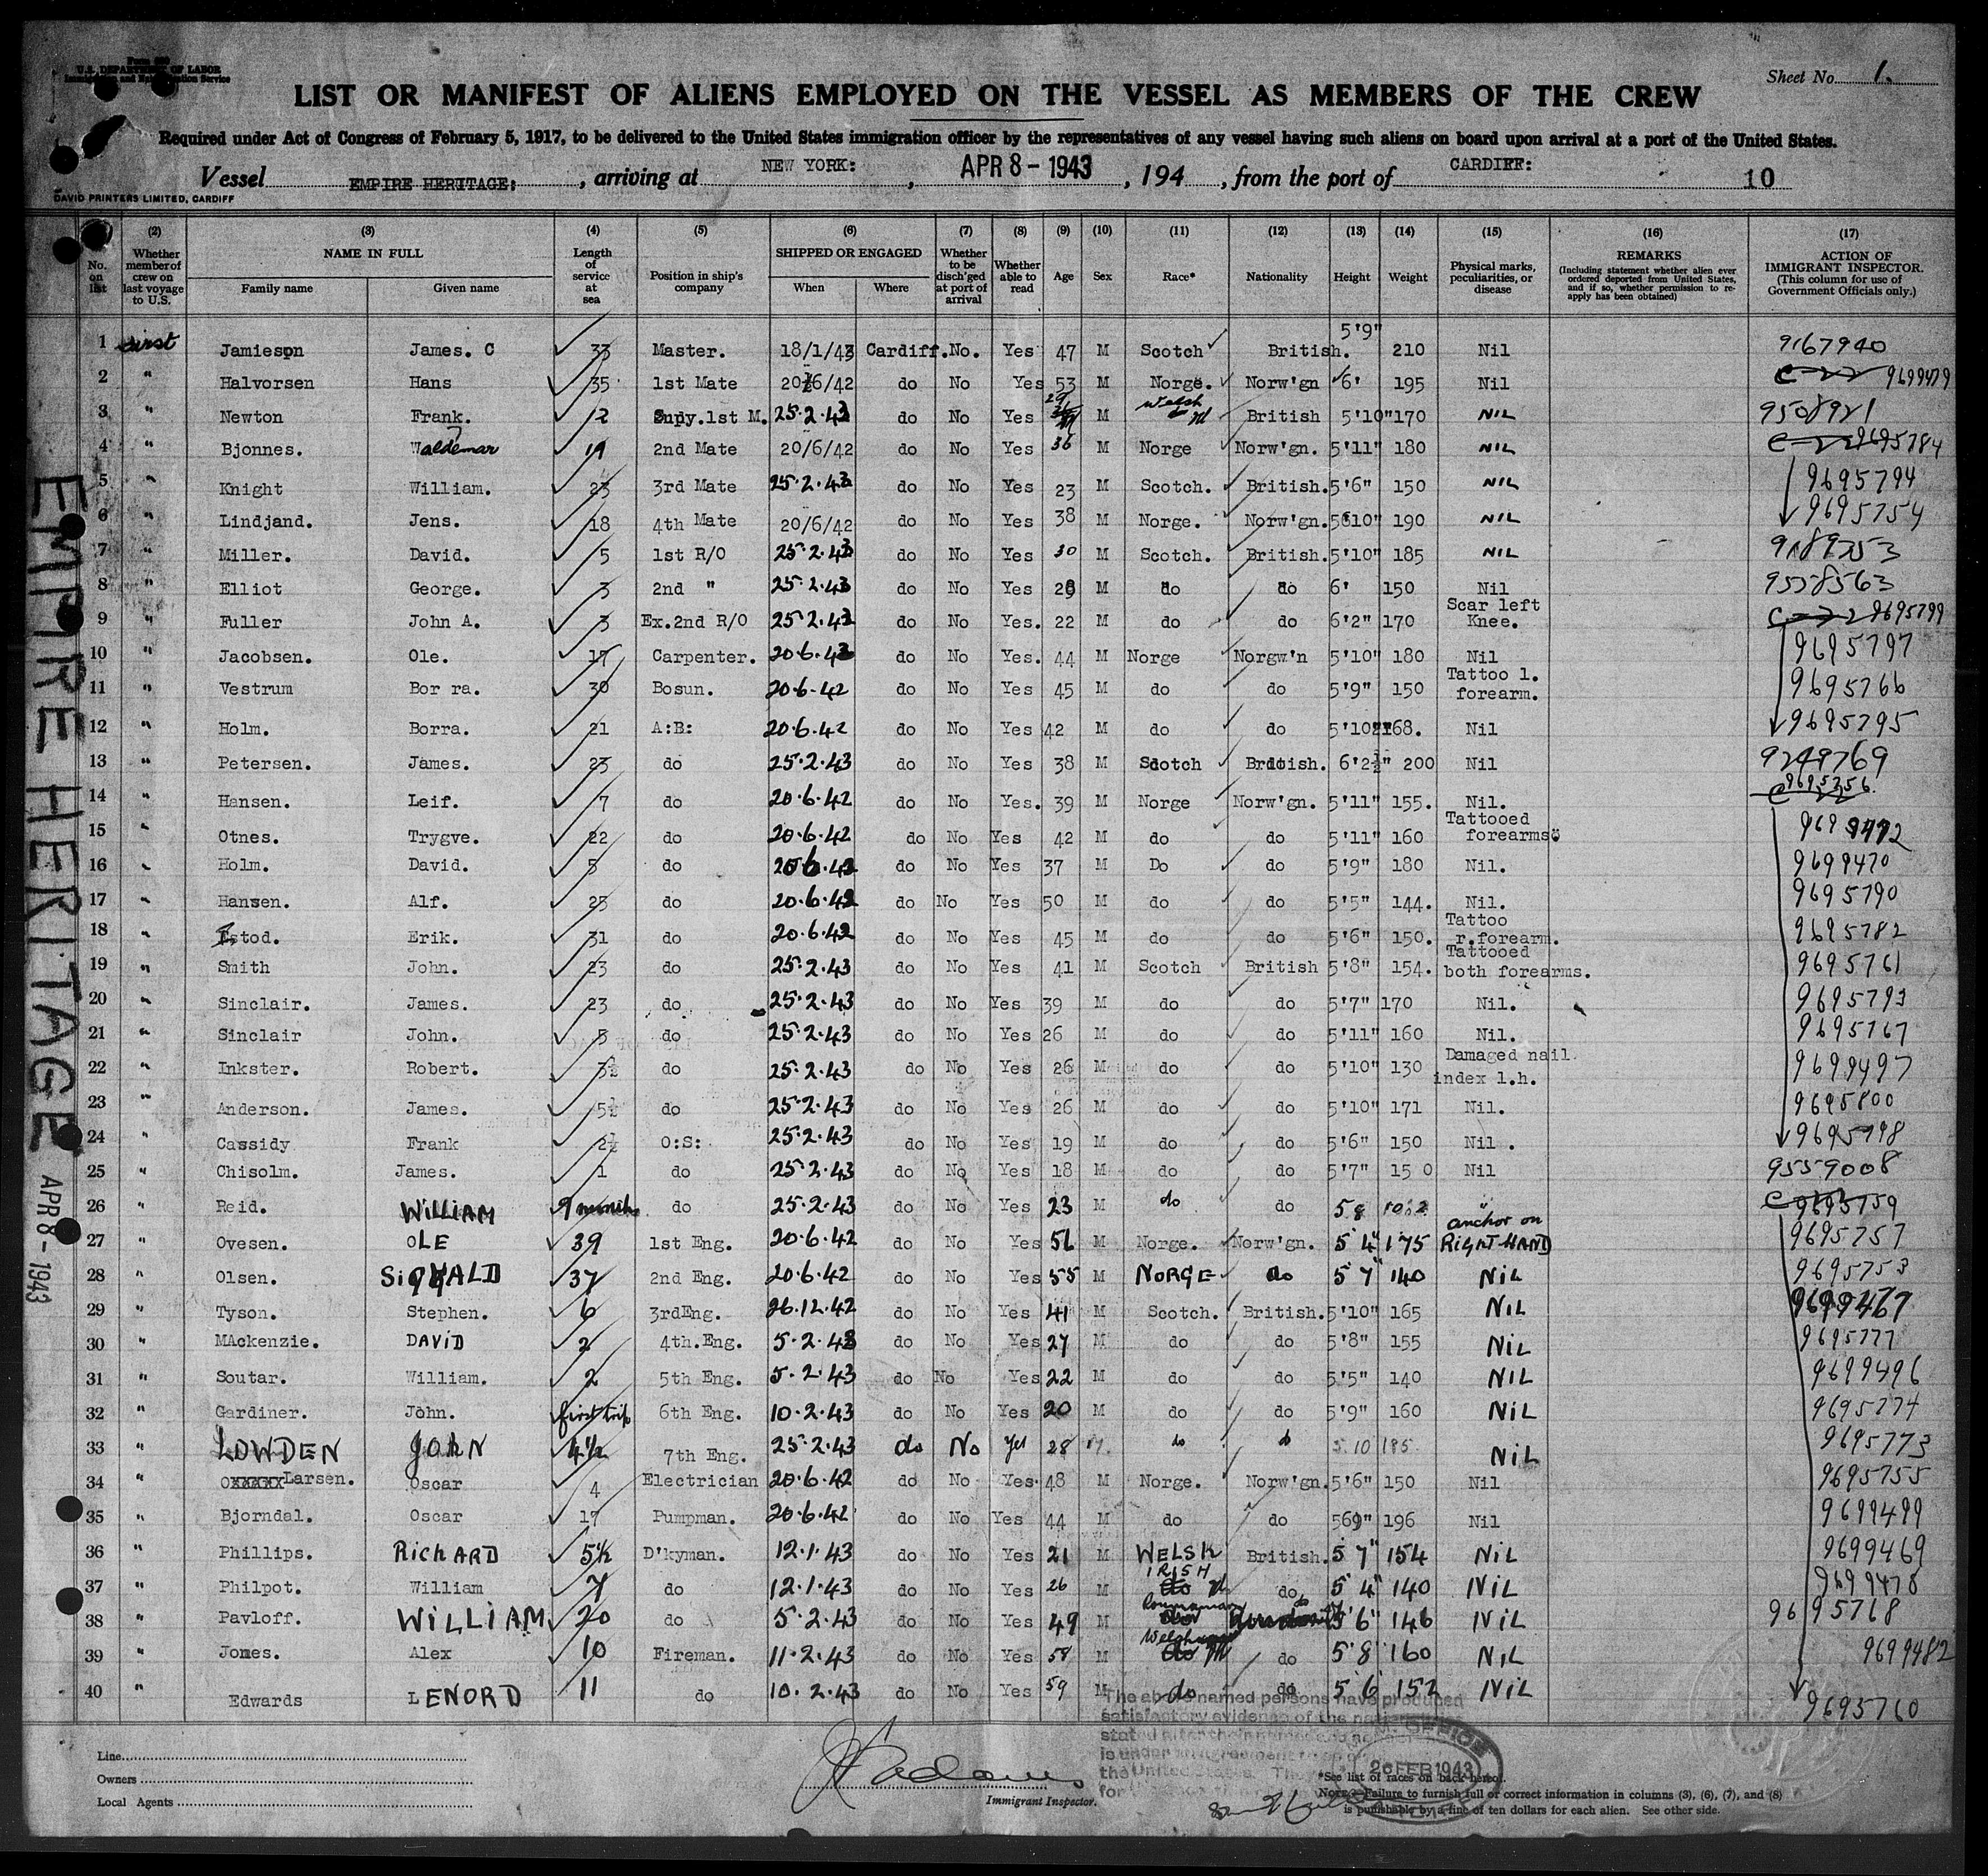 Form 680
U.S. DEPARTMENT OF LABOR
Immigration and Naturalization Service
Sheet No. 1.
LIST OR MANIFEST OF ALIENS EMPLOYED ON THE VESSEL AS MEMBERS OF THE CREW
Required under Act of Congress of February 5, 1917, to be delivered to the United States immigration officer by the representatives of any vessel having such aliens on board upon arrival at a port of the United States.
Vessel EMPIRE HERITAGE: , arriving at NEW YORK: , APR 8 - 1943 , 194 , from the port of CARDIFF: 10
DAVID PRINTERS LIMITED, CARDIFF
(2) (3) (4) (5) (6) (7) (8) (9) (10) (11) (12) (13) (14) (15) (16) (17)
No. on list
Whether member of crew on last voyage to U.S.
NAME IN FULL
Family name Given name
Length of service at sea
Position in ship's company
SHIPPED OR ENGAGED
When Where
Whether to be disch'ged at port of arrival
Whether able to read
Age Sex Race* Nationality Height Weight
Physical marks, peculiarities, or disease
REMARKS
(Including statement whether alien ever ordered deported from United States, and if so, whether permission to re-apply has been obtained)
ACTION OF IMMIGRANT INSPECTOR.
(This column for use of Government Officials only.)
1 first Jamieson James. C 33 Master. 18/1/43 Cardiff. No. Yes 47 M Scotch British. 5'9" 210 Nil 9167940
2 " Halvorsen Hans 35 1st Mate 20/6/42 do No Yes 53 M Norge. Norw'gn 6' 195 Nil 9699479
3 " Newton Frank. 12 Supy.1st M. 25.2.43 do No Yes 29 M Welsh British 5'10" 170 NIL 9508921
4 " Bjonnes. Waldemar 19 2nd Mate 20/6/42 do No Yes 36 M Norge Norw'gn. 5'11" 180 NIL 9695784
5 " Knight William. 23 3rd Mate 25.2.43 do No Yes 23 M Scotch. British. 5'6" 150 NIL 9695794
6 " Lindjand. Jens. 18 4th Mate 20/6/42 do No Yes 38 M Norge. Norw'gn. 5610" 190 NIL 9695754
7 " Miller. David. 5 1st R/O 25.2.43 do No Yes 30 M Scotch. British. 5'10" 185 NIL 9189253
8 " Elliot George. 3 2nd " 25.2.43 do No Yes M do do 6' 150 Nil 9558563
9 " Fuller John A. 3 Ex.2nd R/O 25.2.43 do No Yes. 22 M do do 6'2" 170 Scar left Knee. 9695799
10 " Jacobsen. Ole. 17 Carpenter. 20.6.43 do No Yes. 44 M Norge Norgw'n 5'10" 180 Nil 9695797
11 " Vestrum Bor ra. 30 Bosun. 20.6.42 do No Yes 45 M do do 5'9" 150 Tattoo l. forearm. 9695766
12 " Holm. Borra. 21 A:B: 20.6.42 do No Yes 42 M do do 5'10" 168. Nil 9695795
13 " Petersen. James. 23 do 25.2.43 do No Yes 38 M Scotch British. 6'2½" 200 Nil 9249769
14 " Hansen. Leif. 7 do 20.6.42 do No Yes. 39 M Norge Norw'gn. 5'11" 155. Nil. 9695756
15 " Otnes. Trygve. 22 do 20.6.42 do No Yes 42 M do do 5'11" 160 Tattooed forearms. 9699472
16 " Holm. David. 5 do 20.6.42 do No Yes 37 M Do do 5'9" 180 Nil. 9699470
17 " Hansen. Alf. 25 do 20.6.42 do No Yes 50 M do do 5'5" 144. Nil. 9695790
18 " Estod. Erik. 31 do 20.6.42 do No Yes 45 M do do 5'6" 150. Tattoo r.forearm. 9695782
19 " Smith John. 23 do 25.2.43 do No Yes 41 M Scotch British 5'8" 154. Tattooed both forearms. 9695761
20 " Sinclair. James. 23 do 25.2.43 do No Yes 39 M do do 5'7" 170 Nil. 9695793
21 " Sinclair John. 5 do 25.2.43 do No Yes 26 M do do 5'11" 160 Nil. 9695767
22 " Inkster. Robert. 3½ do 25.2.43 do No Yes 26 M do do 5'10" 130 Damaged nail index l.h. 9699497
23 " Anderson. James. 5½ do 25.2.43 do No Yes 26 M do do 5'10" 171 Nil. 9695800
24 " Cassidy Frank 2½ O:S: 25.2.43 do No Yes 19 M do do 5'6" 150 Nil . 9695798
25 " Chisolm. James. 1 do 25.2.43 do No Yes 18 M do do 5'7" 15 0 Nil 9559008
26 " Reid. WILLIAM 9 months do 25.2.43 do No Yes 23 M do do 5 8 " 9695759
27 " Ovesen. OLE 39 1st Eng. 20.6.42 do No Yes 56 M Norge. Norw'gn. 5'4" 175 anchor on RIGHT HAND 9695757
28 " Olsen. SIGVALD 37 2nd Eng. 20.6.42 do No Yes 55 M NORGE do 5'7" 140 NIL 9695753
29 " Tyson. Stephen. 6 3rdEng. 26.12.42 do No Yes 41 M Scotch. British. 5'10" 165 NIL 9699467
30 " MAckenzie. DAVID 2 4th.Eng. 5.2.43 do No Yes 27 M do do 5'8" 155 NIL 9695777
31 " Soutar. William. 2 5th Eng. 5.2.43 do No Yes 22 M do do 5'5" 140 NIL 9699496
32 " Gardiner. John. first trip 6th Eng. 10.2.43 do No Yes 20 M do do 5'9" 160 NIL 9695774
33 " LOWDEN JOHN 4½ 7th Eng. 25.2.43 do No Yes 28 M. do do 5.10 185 NIL 9695773
34 " Larsen. Oscar 4 Electrician 20.6.42 do No Yes. 48 M Norge. Norw'gn. 5'6" 150 Nil 9695755
35 " Bjorndal. Oscar 17 Pumpman. 20.6.42 do No Yes 44 M do do 569" 196 Nil 9699499
36 " Phillips. RICHARD 5½ D'kyman. 12.1.43 do No Yes 21 M WELSH British. 5'7" 154 NIL 9699469
37 " Philpot. William 7 do 12.1.43 do No Yes 26 M IRISH do 5'4" 140 NIL 9699478
38 " Pavloff. WILLIAM 20 do 5.2.43 do No Yes 49 M Roumanian do 5'6" 146 NIL 9695768
39 " Jones. Alex 10 Fireman. 11.2.43 do No Yes 58 M Welsh do 5'8 160 NIL 9699482
40 " Edwards LENORD 11 do 10.2.43 do No Yes 59 M do do 5'6 152 NIL 9695760
EMPIRE HERITAGE APR 8 - 1943
The above named persons have produced
satisfactory evidence of the
stated after their names
is under an agreement to
the United States. They
for
26 FEB 1943
Line
Owners
Local Agents
Adams
Immigrant Inspector.
*See list of races on back hereof.
NOTE.—Failure to furnish full or correct information in columns (3), (6), (7), and (8)
is punishable by a fine of ten dollars for each alien. See other side.